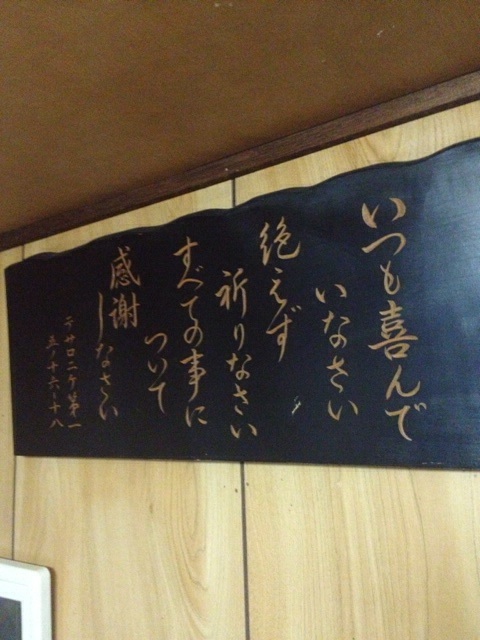 いつも喜んで
いなさい
絶えず
祈りなさい
すべての事に
ついて
感謝
しなさい
テサロニケ第一
五ノ十六〜十八